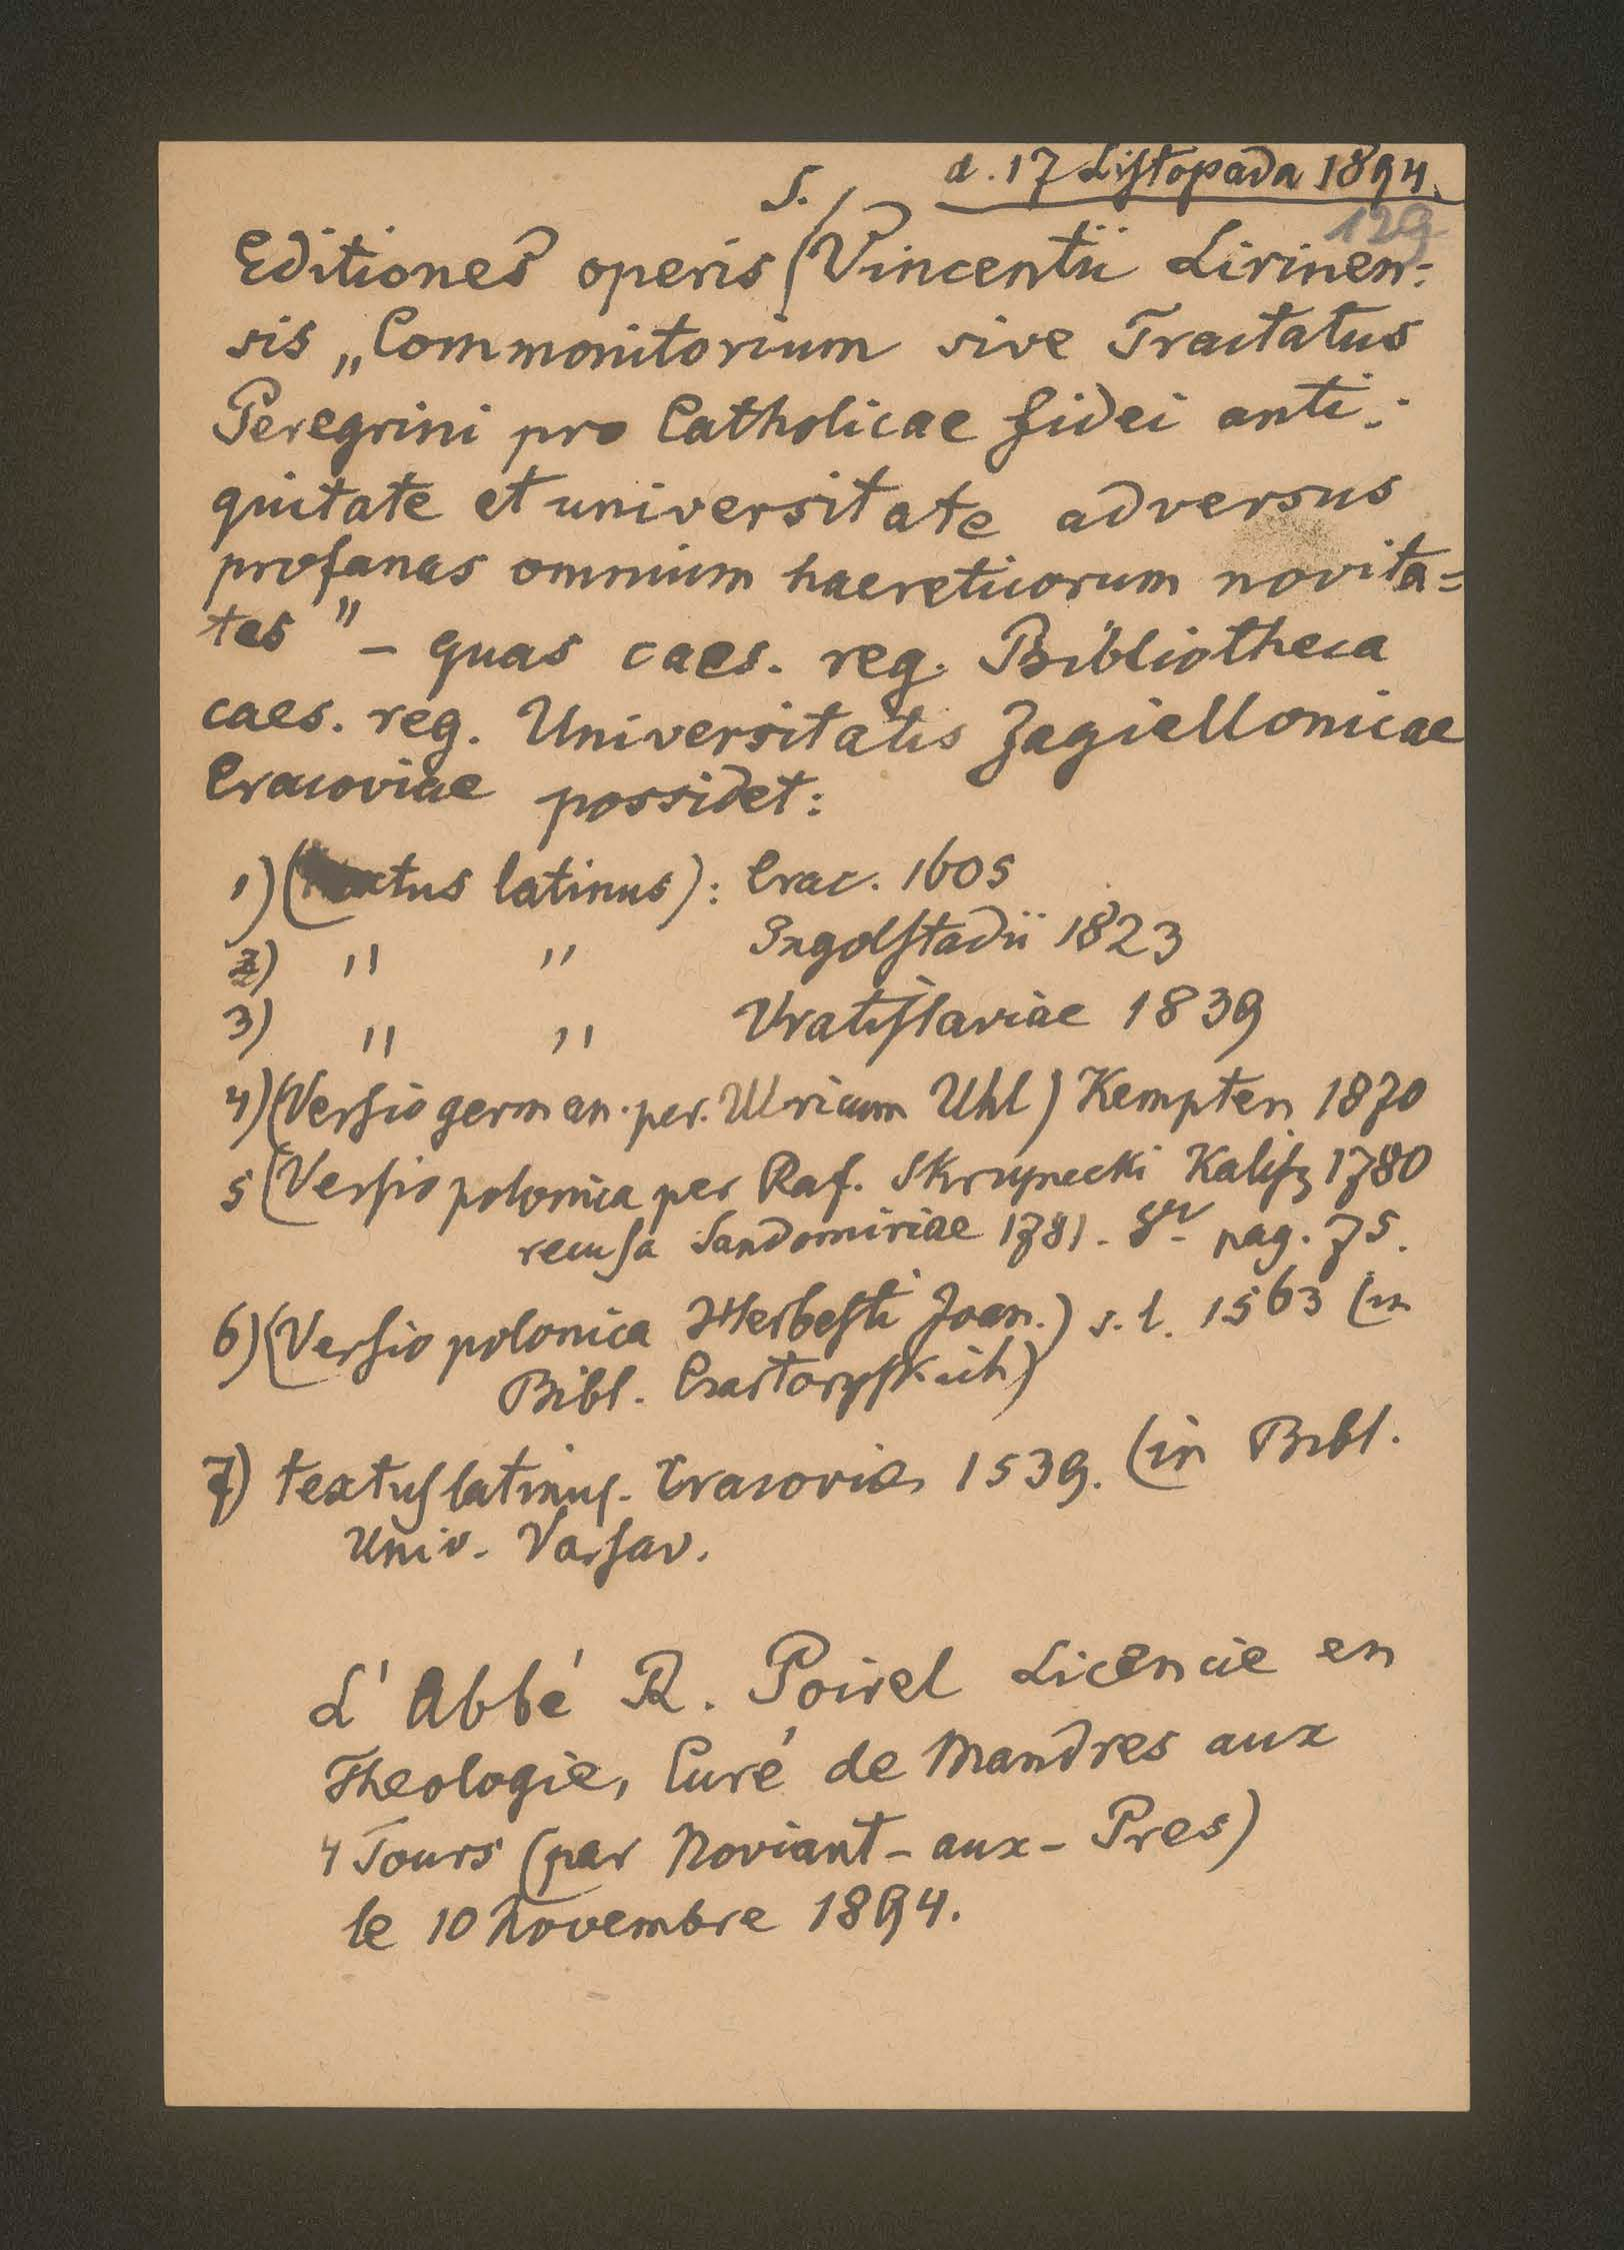 d. 17 Listopada 1894.
129
S.
Editiones operis Vincentii Lirinen-
sis „Commonitorium sive Tractatus
Peregrini pro Catholicae fidei anti-
quitate et universitate adversus
profanas omnium haereticorum novita-
tes" – quas caes. reg. Bibliotheca
caes. reg. Universitatis Jagiellonicae
Cracoviae possidet:
1) (textus latinus): Crac. 1605
2) " " Ingolstadii 1823
3) " " Vratislaviae 1839
4) (Versio german. per. Ulricum Uhl) Kempten 1870
5 (Versio polonica per Raf. Skrzynecki Kalisz 1780
recusa Sandomiriae 1781. 8cv pag. 75.
6) (Versio polonica Herbesti Joan.) s. l. 1563 (in
Bibl. Czartoryskich)
7) textus latinus. Cracovia 1539. (in Bibl.
Univ. Varsav.
L'Abbé R. Poirel Licencie en
Theologie, Curé de Mandres aux
4 Tours (par Noviant-aux-Pres)
le 10 Novembre 1894.